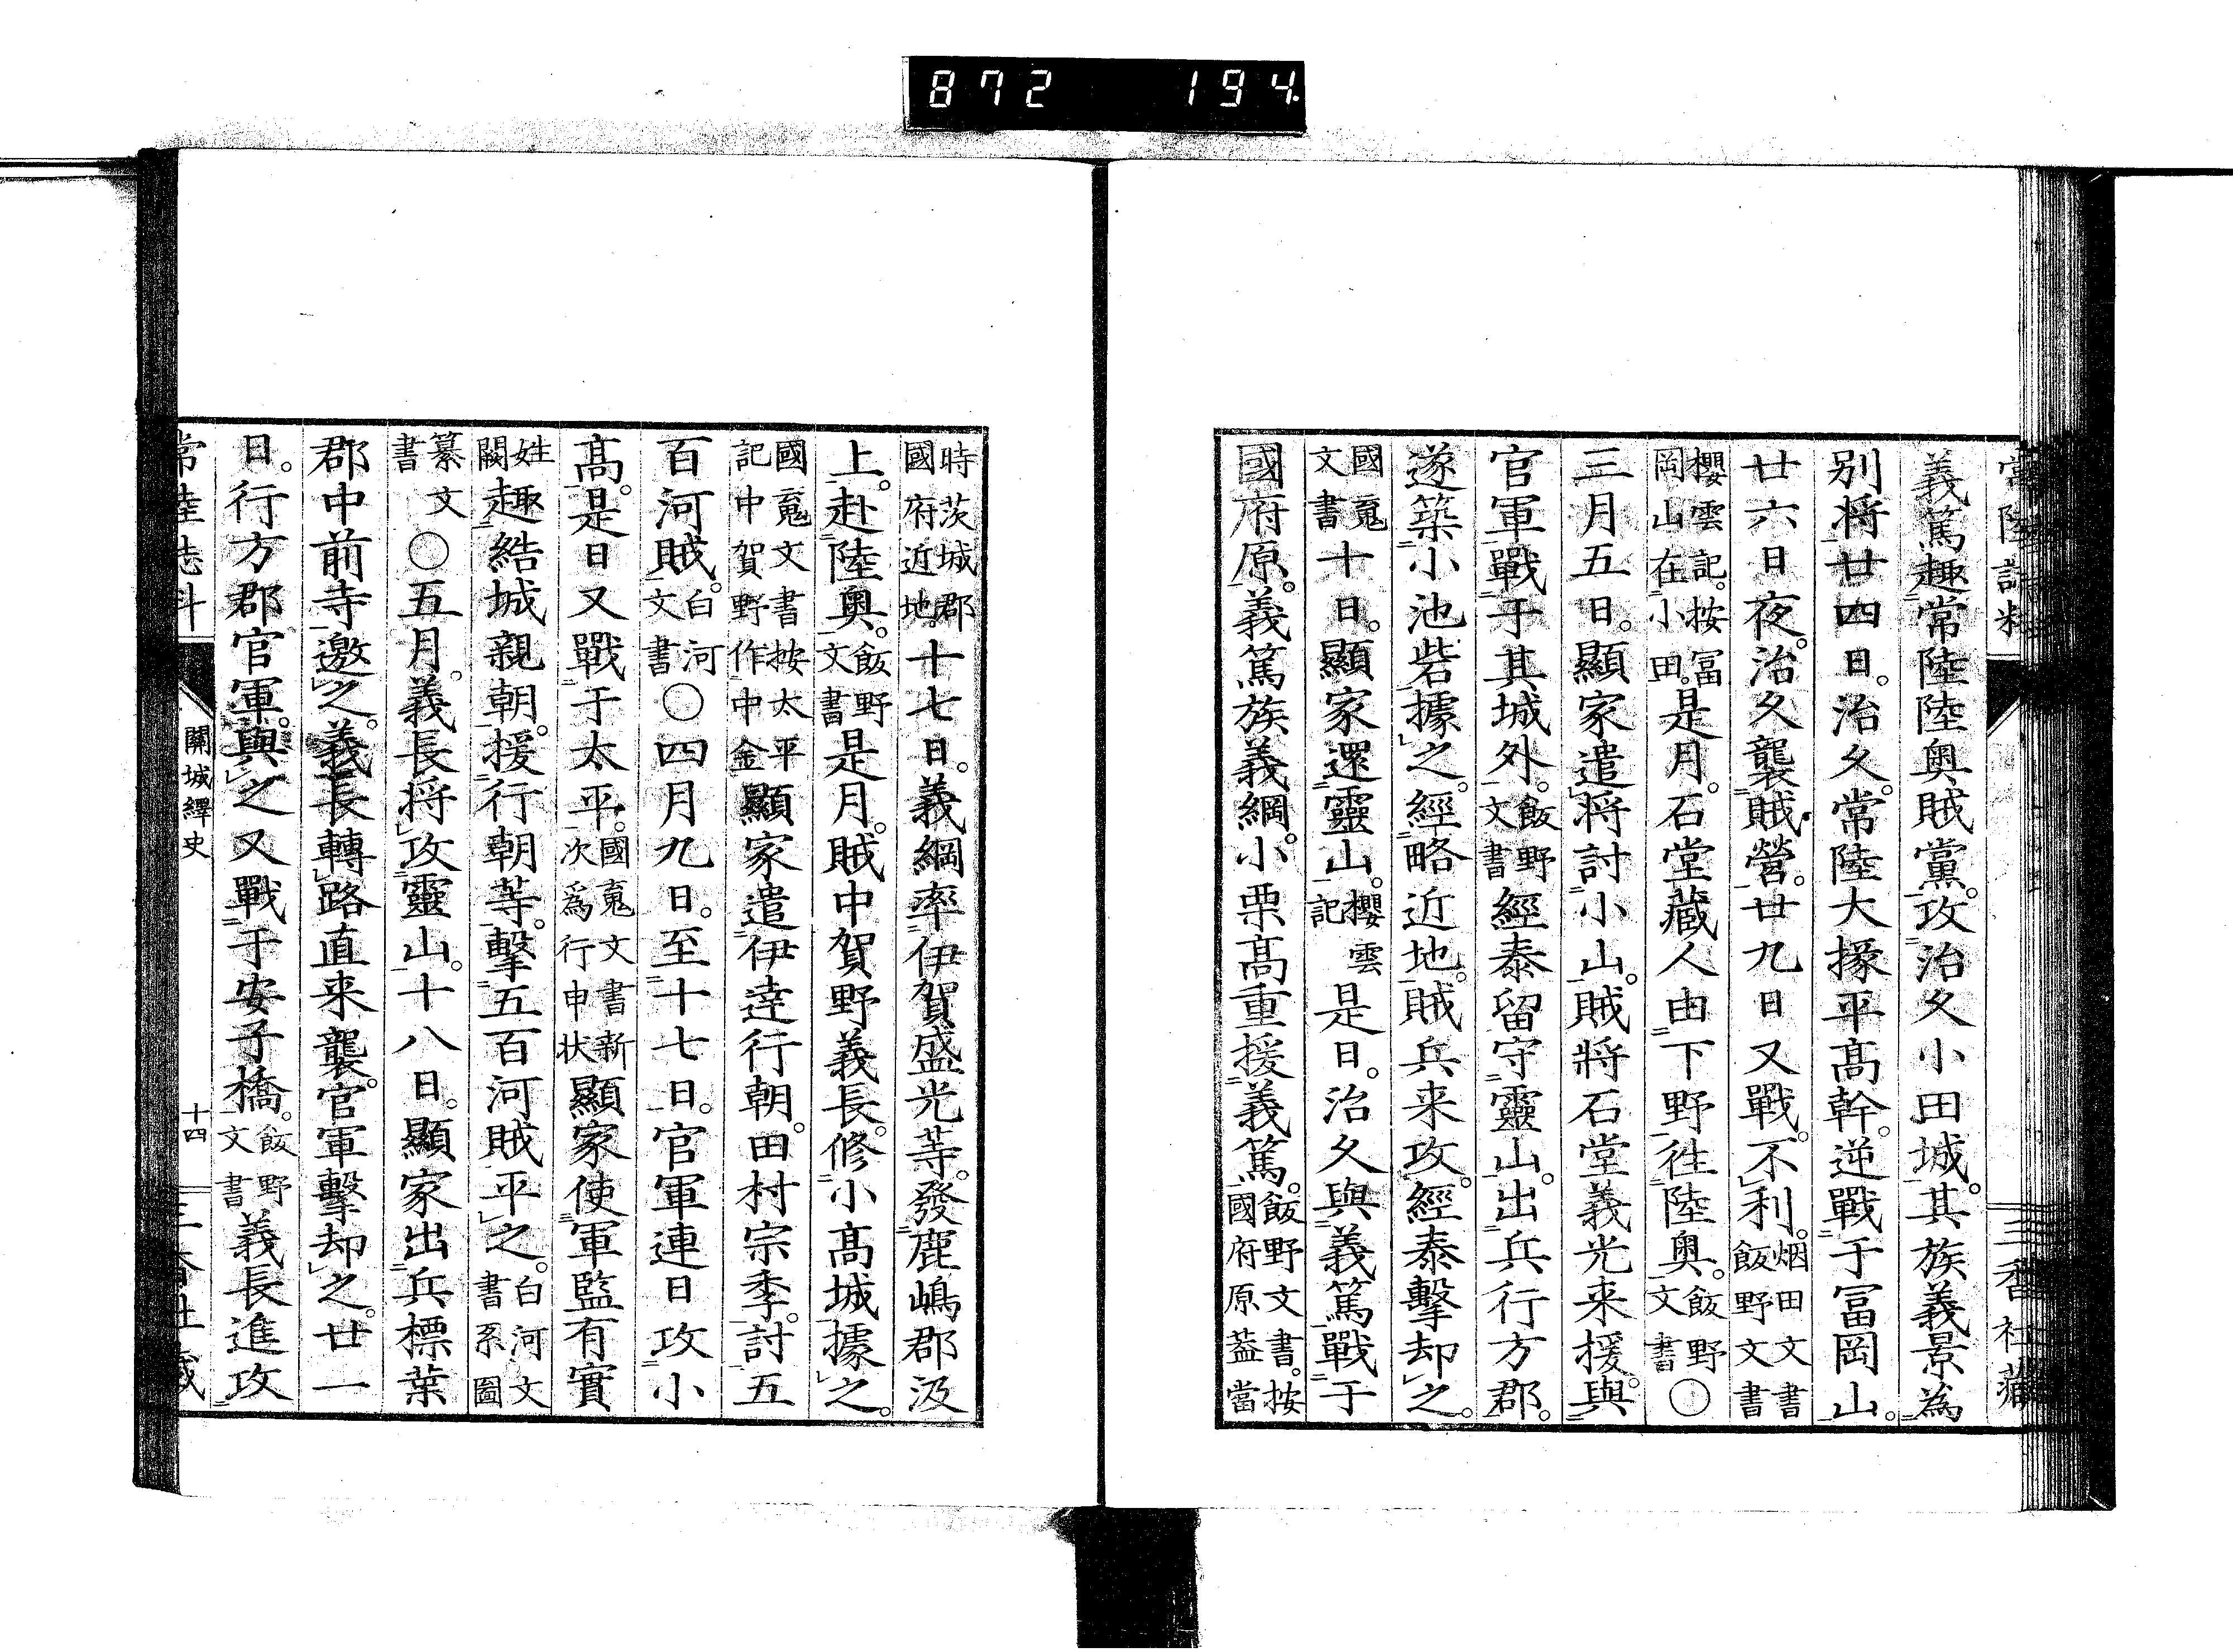 872 194
義篤趣常陸陸奥賊黨。攻治久小田城。其族義景為
別将廿四日。治久。常陸大掾平髙幹。逆戰于冨岡山。
櫻雲記。按冨岡山在小田。
廿六日夜。治久襲賊營。廿九日又戰。不利。烟田文書飯野文書
是月。石堂藏人由下野徃陸奥。飯野文書〇
三月五日。顯家遣将討小山。賊將石堂義光来援。與
官軍戰于其城外。飯野文書經泰留守靈山。出兵行方郡。
遂築小池砦據之。經略近地。賊兵来攻。經泰擊却之。
國䰟文書十日。顯家還靈山。櫻雲記是日。治久與義篤戰于
國府原。義篤族義綱。小栗髙重援義篤。飯野文書。按國府原葢當
時茨城郡國府近地。十七日。義綱率伊賀盛光等。發鹿嶋郡汲
上。赴陸奥。飯野文書是月。賊中賀野義長。修小髙城據之。
國䰟文書按太平記中賀野作中金顯家遣伊逹行朝。田村宗季。討五
百河賊。白河文書〇四月九日。至十七日。官軍連日攻小
髙。是日又戰于太平。國䰟文書新次為行申状顯家使軍監有實
姓闕趣結城親朝。援行朝等。擊五百河賊平之。白河文書系圖
纂文書〇五月。義長将攻靈山。十八日。顯家出兵標葉
郡中前寺邀之。義長轉路直来襲。官軍擊却之。廿一
日。行方郡官軍。與之又戰于安子橋。飯野文書義長進攻
關城繹史
十四